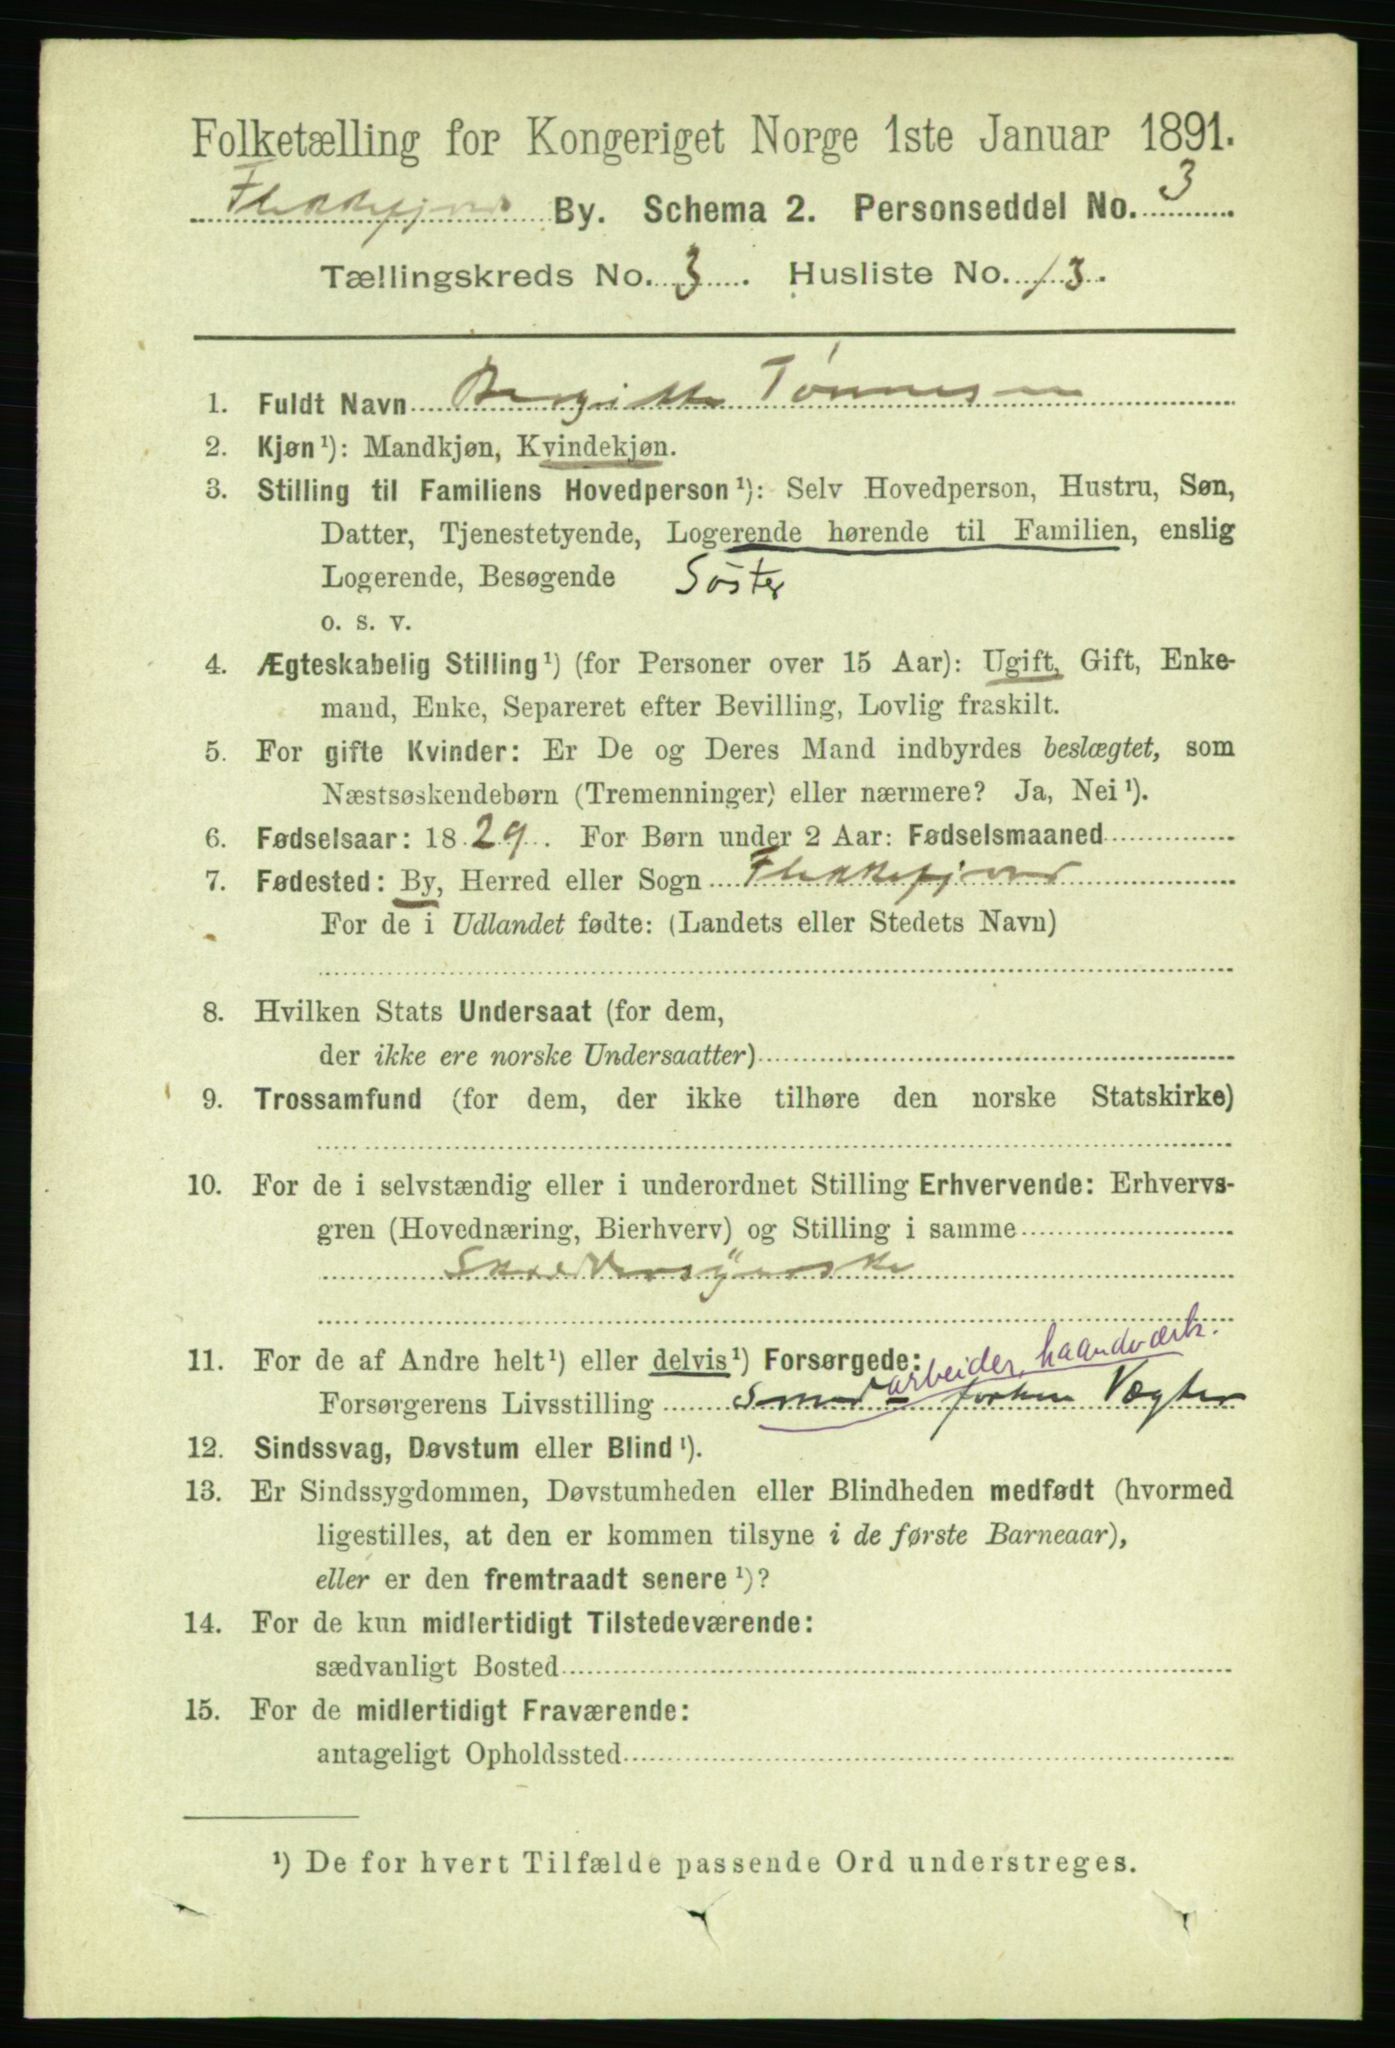 Folketælling for Kongeriget Norge 1ste Januar 1891.
Flekkefjord By. Schema 2. Personseddel No. 3
Tællingskreds No. 3. Husliste No. 13.
1. Fuldt Navn Bergitte Tønnesen
2. Kjøn¹): Mandkjøn, Kvindekjøn.
3. Stilling til Familiens Hovedperson¹): Selv Hovedperson, Hustru, Søn,
Datter, Tjenestetyende, Logerende hørende til Familien, enslig
Logerende, Besøgende Söster
o. s. v.
4. Ægteskabelig Stilling¹) (for Personer over 15 Aar): Ugift, Gift, Enke-
mand, Enke, Separeret efter Bevilling, Lovlig fraskilt.
5. For gifte Kvinder: Er De og Deres Mand indbyrdes beslægtet, som
Næstsøskendebørn (Tremenninger) eller nærmere? Ja, Nei¹).
6. Fødselsaar: 1829. For Børn under 2 Aar: Fødselsmaaned
7. Fødested: By, Herred eller Sogn Flekkefjord
For de i Udlandet fødte: (Landets eller Stedets Navn)
8. Hvilken Stats Undersaat (for dem,
der ikke ere norske Undersaatter)
9. Trossamfund (for dem, der ikke tilhøre den norske Statskirke)
10. For de i selvstændig eller i underordnet Stilling Erhvervende: Erhvervs-
gren (Hovednæring, Bierhverv) og Stilling i samme
Skreddersyerske
11. For de af Andre helt¹) eller delvis¹) Forsørgede:
arbeider, haandværk.
Forsørgerens Livsstilling Smed - forhen Vægter
12. Sindssvag, Døvstum eller Blind¹).
13. Er Sindssygdommen, Døvstumheden eller Blindheden medfødt (hvormed
ligestilles, at den er kommen tilsyne i de første Barneaar),
eller er den fremtraadt senere¹)?
14. For de kun midlertidigt Tilstedeværende:
sædvanligt Bosted
15. For de midlertidigt Fraværende:
antageligt Opholdssted
¹) De for hvert Tilfælde passende Ord understreges.